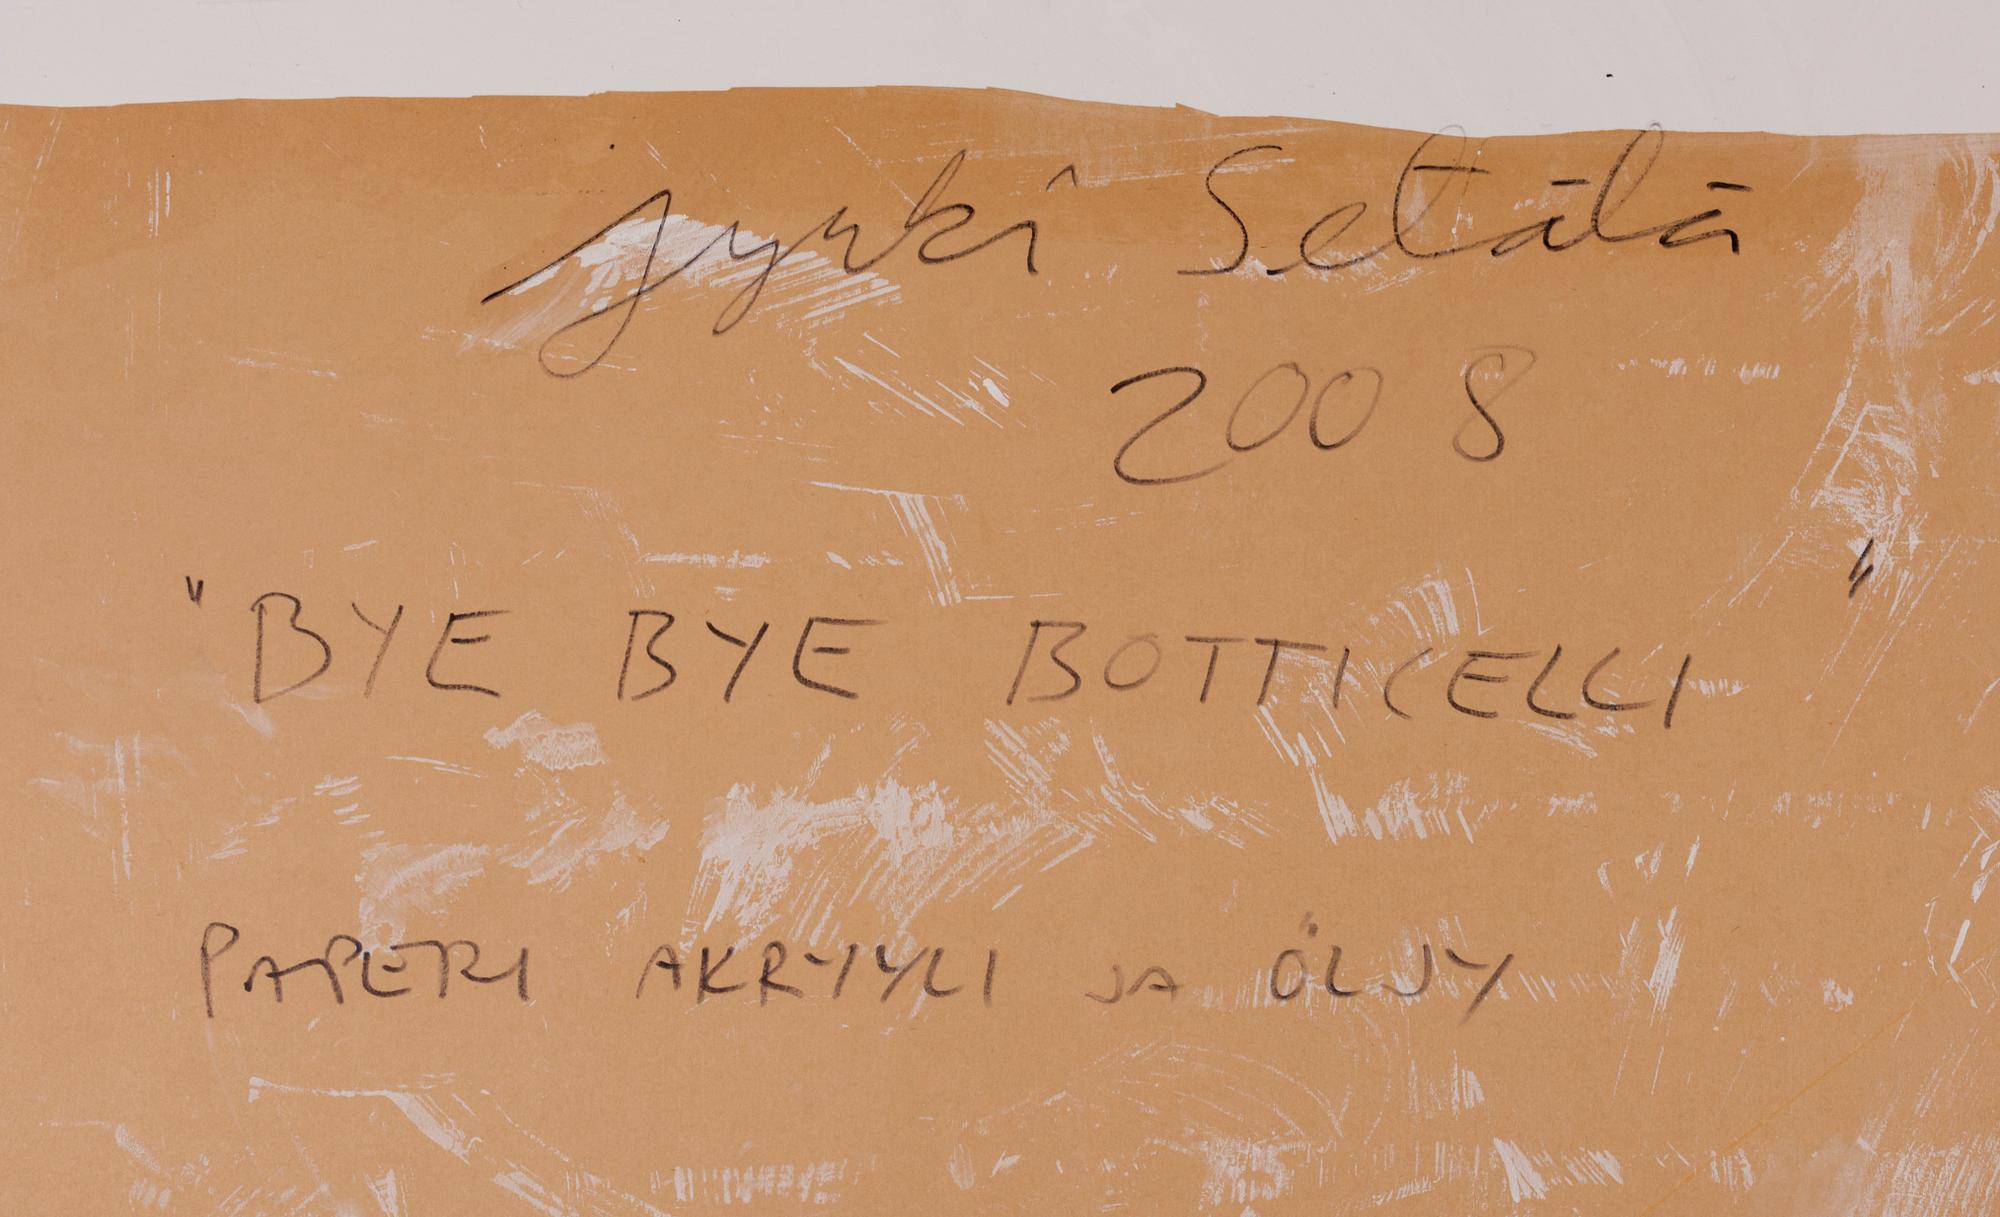 Jyrki Setälä
2008
"BYE BYE BOTTICELLI"
PAPERI AKRYYLI JA ÖLJY